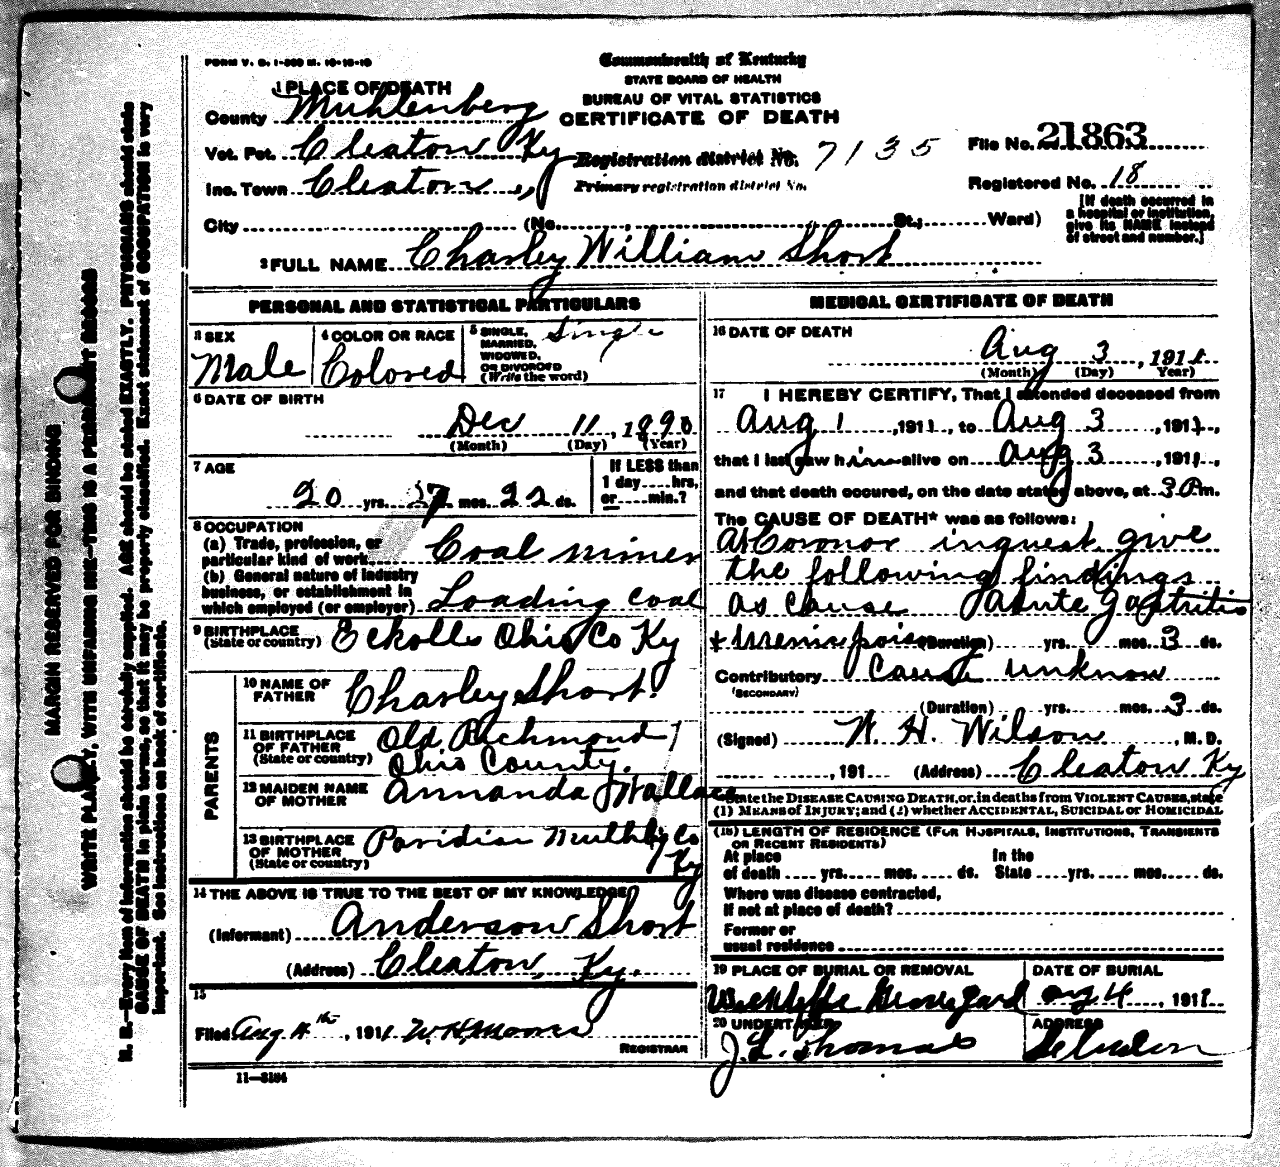 FORM V. S. 1-500 M. 10-10-10
Commonwealth of Kentucky
STATE BOARD OF HEALTH
BUREAU OF VITAL STATISTICS
CERTIFICATE OF DEATH
1 PLACE OF DEATH
County Muhlenberg
Vot. Pct. Cleaton Ky
Inc. Town Cleaton
City (No. St.; Ward)
Registration district No. 7135
Primary registration district No.
File No. 21863
Registered No. 18
[If death occurred in
a hospital or institution,
give its NAME instead
of street and number.]
2 FULL NAME Charley William Short
PERSONAL AND STATISTICAL PARTICULARS
3 SEX
Male
4 COLOR OR RACE
Colored
5 SINGLE, MARRIED, WIDOWED, OR DIVORCED (Write the word) Single
6 DATE OF BIRTH
Dec 11, 1890
(Month) (Day) (Year)
7 AGE
20 yrs. 7 mos. 22 ds.
If LESS than
1 day.....hrs,
or.....min.?
8 OCCUPATION
(a) Trade, profession, or
particular kind of work Coal miner
(b) General nature of industry
business, or establishment in
which employed (or employer) Loading coal
9 BIRTHPLACE
(State or country) Eckolls Ohio Co Ky
PARENTS
10 NAME OF
FATHER Charley Short
11 BIRTHPLACE
OF FATHER
(State or country) Old Richmond
Ohio County.
12 MAIDEN NAME
OF MOTHER Annanda Wallace
13 BIRTHPLACE
OF MOTHER
(State or country) Paridise Muthbg Co
Ky
14 THE ABOVE IS TRUE TO THE BEST OF MY KNOWLEDGE
(Informant) Anderson Short
(Address) Cleaton, Ky.
15
Filed Aug 4th, 1911 W. H. Moores
REGISTRAR
11-3184
MEDICAL CERTIFICATE OF DEATH
16 DATE OF DEATH
Aug 3, 1911
(Month) (Day) (Year)
17 I HEREBY CERTIFY, That I attended deceased from
Aug 1, 1911, to Aug 3, 1911,
that I last saw him alive on Aug 3, 1911,
and that death occured, on the date stated above, at 3 P m.
The CAUSE OF DEATH* was as follows:
At Coronor inquest give
the following findings
as cause Acute gastritis
+ Uremic poison (Duration) yrs. mos. 3 ds.
Contributory Cause unknow
(SECONDARY)
(Duration) yrs. mos. 3 ds.
(Signed) W. H. Wilson, M. D.
, 191 (Address) Cleaton Ky
*State the DISEASE CAUSING DEATH, or, in deaths from VIOLENT CAUSES, state
(1) MEANS OF INJURY; and (2) whether ACCIDENTAL, SUICIDAL OR HOMICIDAL
(18) LENGTH OF RESIDENCE (FOR HOSPITALS, INSTITUTIONS, TRANSIENTS
OR RECENT RESIDENTS)
At place
of death yrs. mos. ds.
In the
State yrs. mos. ds.
Where was disease contracted,
If not at place of death?
Former or
usual residence
19 PLACE OF BURIAL OR REMOVAL
Wickliffe Graveyard
DATE OF BURIAL
Aug 4, 1911
20 UNDERTAKER
J. L. Thomas
ADDRESS
MARGIN RESERVED FOR BINDING
WRITE PLAINLY, WITH UNFADING INK—THIS IS A PERMANENT RECORD
N. B.—Every item of information should be carefully supplied. AGE should be stated EXACTLY. PHYSICIANS should state
CAUSE OF DEATH in plain terms, so that it may be properly classified. Exact statement of OCCUPATION is very
important. See instructions on back of certificate.